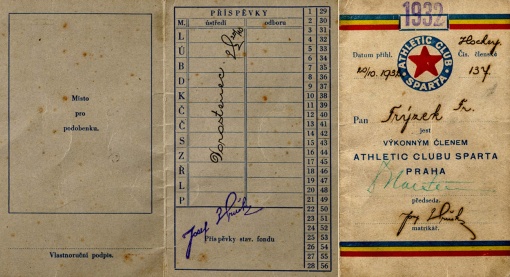 Místo
pro
podobenku.
Vlastnoruční podpis.
PŘÍSPĚVKY
M. ústředí odboru
L
Ú
B
D
K
Č
Č
S
Z
Ř
L
P
Dorostenec
1 29
2 30
3 31
4 32
5 33
6 34
7 35
8 36
9 37
10 38
11 39
12 40
13 41
14 42
15 43
16 44
17 45
18 46
19 47
20 48
21 49
22 50
23 51
24 52
25 53
26 54
27 55
28 56
Josef
Příspěvky stav. fondu
1932
Hockey
Datum přihl. Čís. členská
20/10. 1932 137
ATHLETIC CLUB
SPARTA
Pan Frýzek Fr.
jest
VÝKONNÝM ČLENEM
ATHLETIC CLUBU SPARTA
PRAHA
předseda.
Jos.
matrikář.